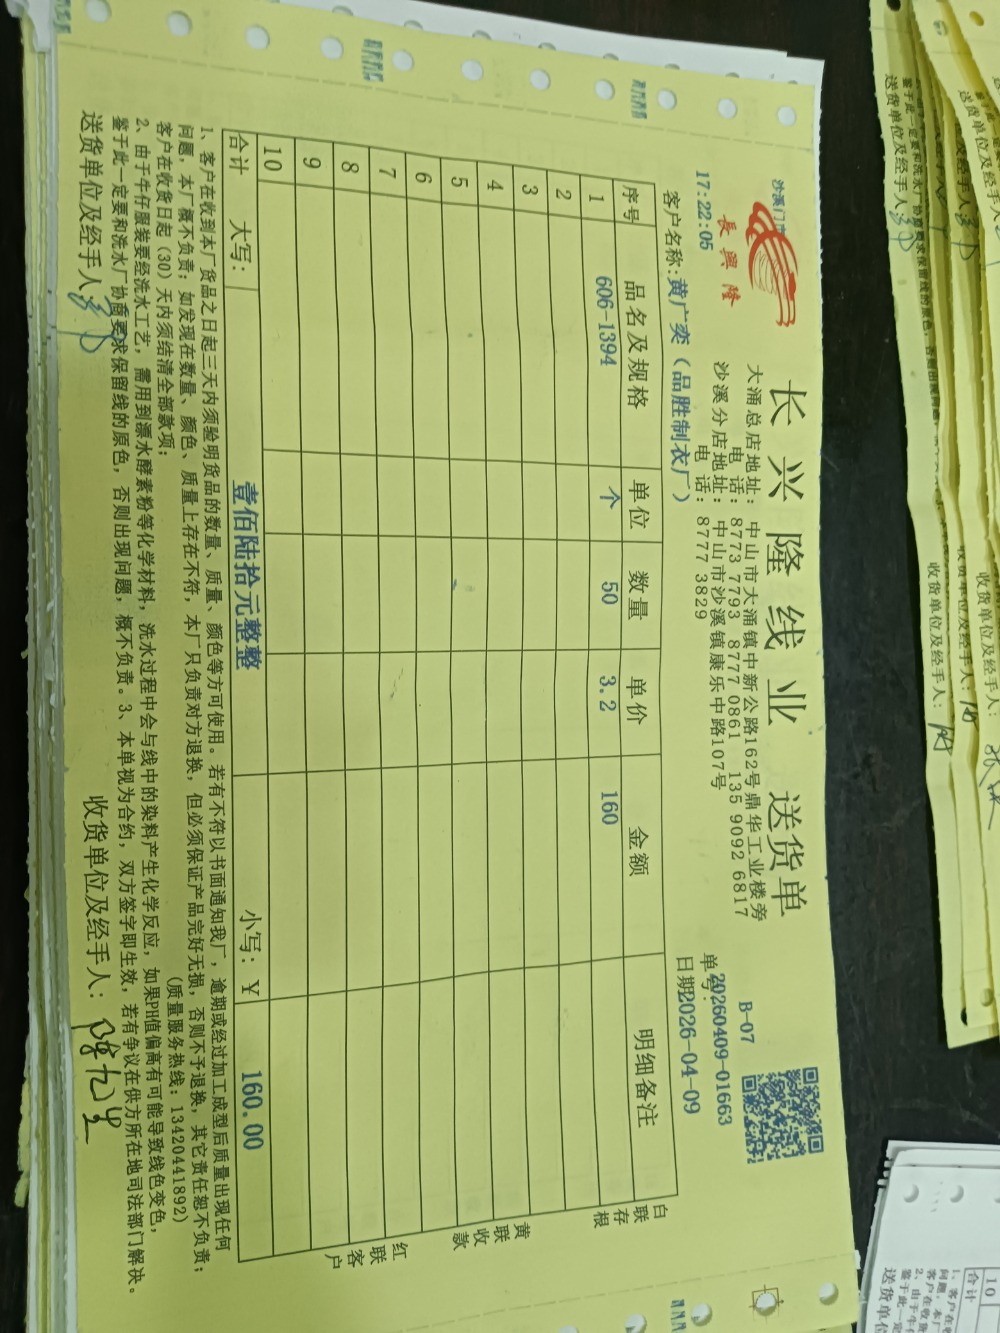 长兴隆线业 送货单
沙溪门市
長興隆
大涌总店地址: 中山市大涌镇中新公路162号鼎华工业楼旁
电话: 8773 7793 8777 0861 135 9092 6817
沙溪分店地址: 中山市沙溪镇康乐中路107号
电话: 8777 3829
B-07
单号: 20260409-01663
日期2026-04-09
17:22:05
客户名称:黄广奕(品胜制衣厂)
序号 品名及规格 单位 数量 单价 金额 明细备注
1 606-1394 个 50 3.2 160
2
3
4
5
6
7
8
9
10
合计 大写: 壹佰陆拾元整整 小写: ¥ 160.00
白联存根
黄联收款
红联客户
1、客户在收到本厂货品之日起三天内须验明货品的数量、质量、颜色等方可使用。若有不符以书面通知我厂,逾期或经过加工成型后质量出现任何
问题,本厂概不负责;如发现在数量、颜色、质量上存在不符,本厂只负责对方退换,但必须保证产品完好无损,否则不予退换,其它责任恕不负责;
客户在收货日起(30)天内须结清全部款项; (质量服务热线:13420441892)
2、由于牛仔服装要经洗水工艺,需用到漂水酵素粉等化学材料,洗水过程中会与线中的染料产生化学反应,如果PH值偏高有可能导致线色变色,
鉴于此一定要和洗水厂协商要求保留线的原色,否则出现问题,概不负责。3、本单视为合约,双方签字即生效,若有争议在供方所在地司法部门解决。
送货单位及经手人 收货单位及经手人:
送货单位及经手人
收货单位及经手人:
送货单位及经手人
收货单位及经手人:
10
合计